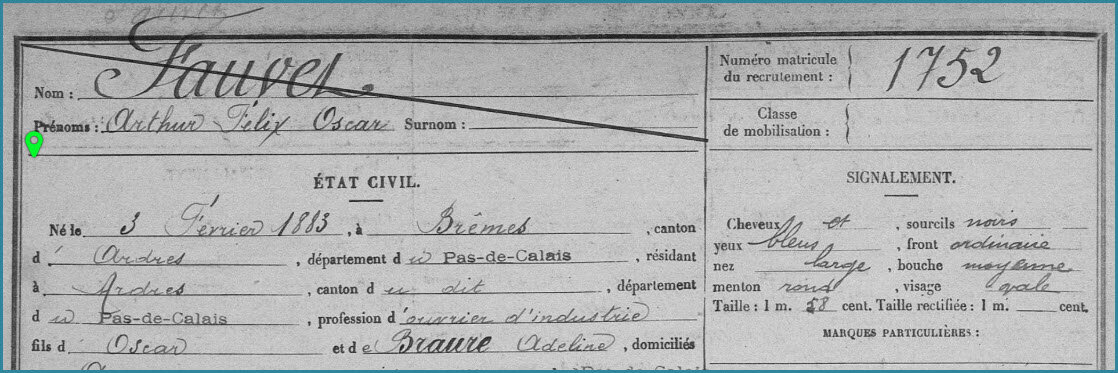 Fauvet
Nom :
Prénoms : Arthur Félix Oscar Surnom :
Numéro matricule du recrutement : 1752
Classe de mobilisation :
ÉTAT CIVIL.
Né le 3 Février 1883, à Brêmes, canton
d' Ardres, département du Pas-de-Calais, résidant
à Ardres, canton du dit, département
du Pas-de-Calais, profession d'ouvrier d'industrie
fils d' Oscar et de Braure Adeline, domiciliés
SIGNALEMENT.
Cheveux et, sourcils noirs
yeux bleus, front ordinaire
nez large, bouche moyenne
menton rond, visage ovale
Taille : 1 m. 58 cent. Taille rectifiée : 1 m. cent.
MARQUES PARTICULIÈRES :